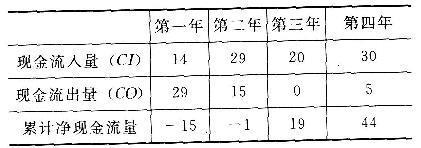 第一年 第二年 第三年 第四年
现金流入量（CI） 14 29 20 30
现金流出量（CO） 29 15 0 5
累计净现金流量 －15 －1 19 44